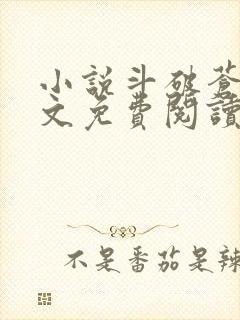 小說斗破蒼
文免費閱讀
不是番茄是辣